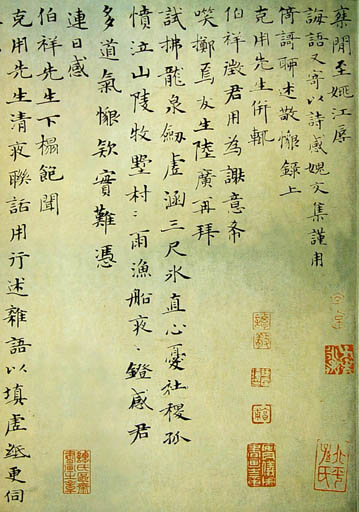 聞至姚江辱
誨語又寄以詩感媿交集謹用
韻聊述敬懷錄上
克用先生併
伯祥徵君用為謝意希
笑擲焉友生陸廣再拜
試拂龍泉劒虛涵三尺氷直心憂社稷孤
憤泣山陵牧墅村〻雨漁船夜〻鐙感君
多道氣慚欵實難憑
連日感
伯祥先生下榻飽聞
克用先生清夜聯話用行述雜語以填虛紙更伺